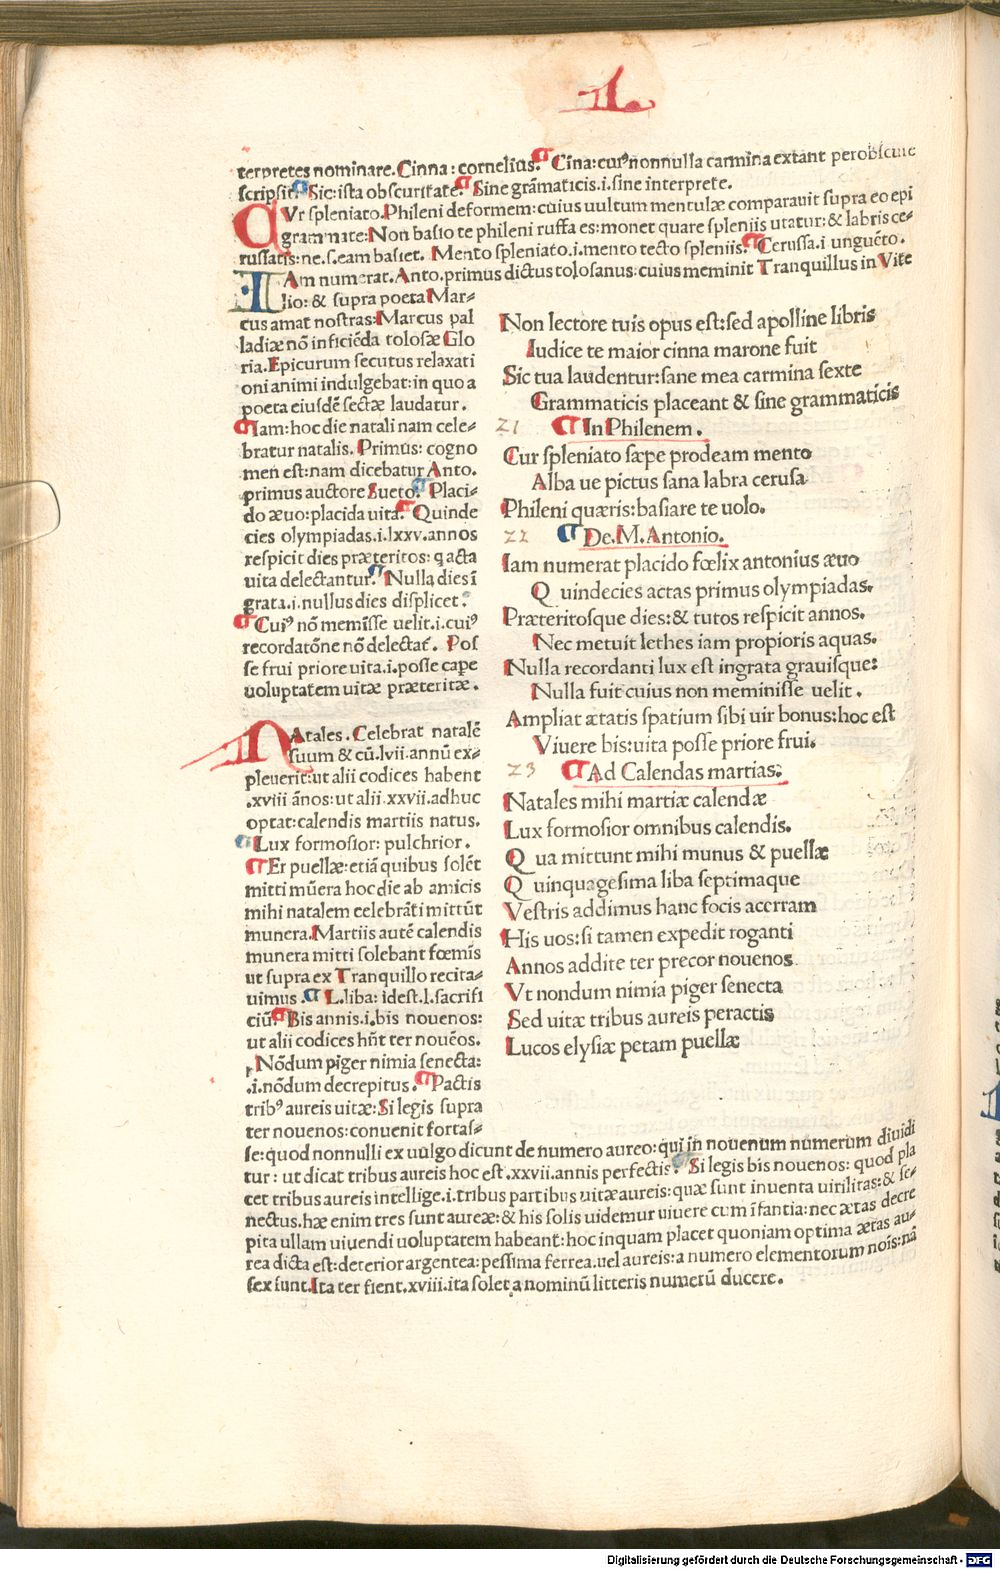 L
terpretes nominare. Cinna: cornelius. Cina: cuiꝰ nonnulla carmina extant perobscure
scripsit. Sic: ista obscuritate. Sine grãmaticis .i. sine interprete.
CVr spleniato. Phileni deformem: cuius uultum mentulæ comparauit supra eo epi
grammate: Non basio te phileni ruffa es: monet quare spleniis utatur: & labris ce-
russatis: ne .s. eam basiet. Mento spleniato .i. mento tecto spleniis. Cerussa .i unguẽto.
IAm numerat. Anto. primus dictus tolosanus: cuius meminit Tranquillus in Vite
lio: & supra poeta Mar-
cus amat nostras: Marcus pal
ladiæ nõ inficiẽda tolosæ Glo
ria. Epicurum secutus relaxati
oni animi indulgebat: in quo a
poeta eiusdẽ sectæ laudatur.
Iam: hoc die natali nam cele-
bratur natalis. Primus: cogno
men est: nam dicebatur Anto.
primus auctore Sueto. Placi-
do æuo: placida uita. Quinde
cies olympiadas .i. lxxv. annos
respicit dies præteritos: q acta
uita delectantur. Nulla dies ĩ
grata .i. nullus dies displicet.
Cuiꝰ nõ memisse uelit .i. cuiꝰ
recordatõne nõ delectat̃. Pos
se frui priore uita .i. posse cape
uoluptatem uitæ præteritæ.
NAtales. Celebrat natalẽ
suum & cũ .lvii. annũ ex-
pleuerit: ut alii codices habent
.xviii ãnos: ut alii .xxvii. adhuc
optat: calendis martiis natus.
Lux formosior: pulchrior.
Et puellæ: etiã quibus solẽt
mitti mũera hoc die ab amicis
mihi natalem celebrãti mittũt
munera. Martiis autẽ calendis
munera mitti solebant fœmĩs
ut supra ex Tranquillo recita-
uimus. L. liba: idest .l. sacrifi
ciũ. Bis annis .i. bis nouenos:
ut alii codices hñt ter nouẽos.
Nõdum piger nimia senecta:
.i. nõdum decrepitus. Pactis
tribꝰ aureis uitæ: Si legis supra
ter nouenos: conuenit fortas-
Non lectore tuis opus est: sed apolline libris
Iudice te maior cinna marone fuit
Sic tua laudentur: sane mea carmina sexte
Grammaticis placeant & sine grammaticis
21 In Philenem.
Cur spleniato sæpe prodeam mento
Alba ue pictus sana labra cerusa
Phileni quæris: basiare te uolo.
22 De. M. Antonio.
Iam numerat placido fœlix antonius æuo
Quindecies actas primus olympiadas.
Præteritosque dies: & tutos respicit annos.
Nec metuit lethes iam propioris aquas.
Nulla recordanti lux est ingrata grauisque:
Nulla fuit cuius non meminisse uelit.
Ampliat ætatis spatium sibi uir bonus: hoc est
Viuere bis: uita posse priore frui.
23 Ad Calendas martias.
Natales mihi martiæ calendæ
Lux formosior omnibus calendis.
Qua mittunt mihi munus & puellæ
Quinquagesima liba septimaque
Vestris addimus hanc focis acerram
His uos: si tamen expedit roganti
Annos addite ter precor nouenos
Vt nondum nimia piger senecta
Sed uitæ tribus aureis peractis
Lucos elysiæ petam puellæ
se: quod nonnulli ex uulgo dicunt de numero aureo: qui in nouenum numerum diuidi
tur: ut dicat tribus aureis hoc est .xxvii. annis perfectis. Si legis bis nouenos: quod pla
cet tribus aureis intellige .i. tribus partibus uitæ aureis: quæ sunt inuenta uirilitas: & se-
nectus. hæ enim tres sunt aureæ: & his solis uidemur uiuere cum ĩfantia: nec ætas decre
pita ullam uiuendi uoluptatem habeant: hoc inquam placet quoniam optima ætas au-
rea dicta est: deterior argentea: pessima ferrea. uel aureis: a numero elementorum nois: nã
sex sunt. Ita ter fient .xviii. ita solet a nominũ litteris numerũ ducere.
Digitalisierung gefördert durch die Deutsche Forschungsgemeinschaft - DFG